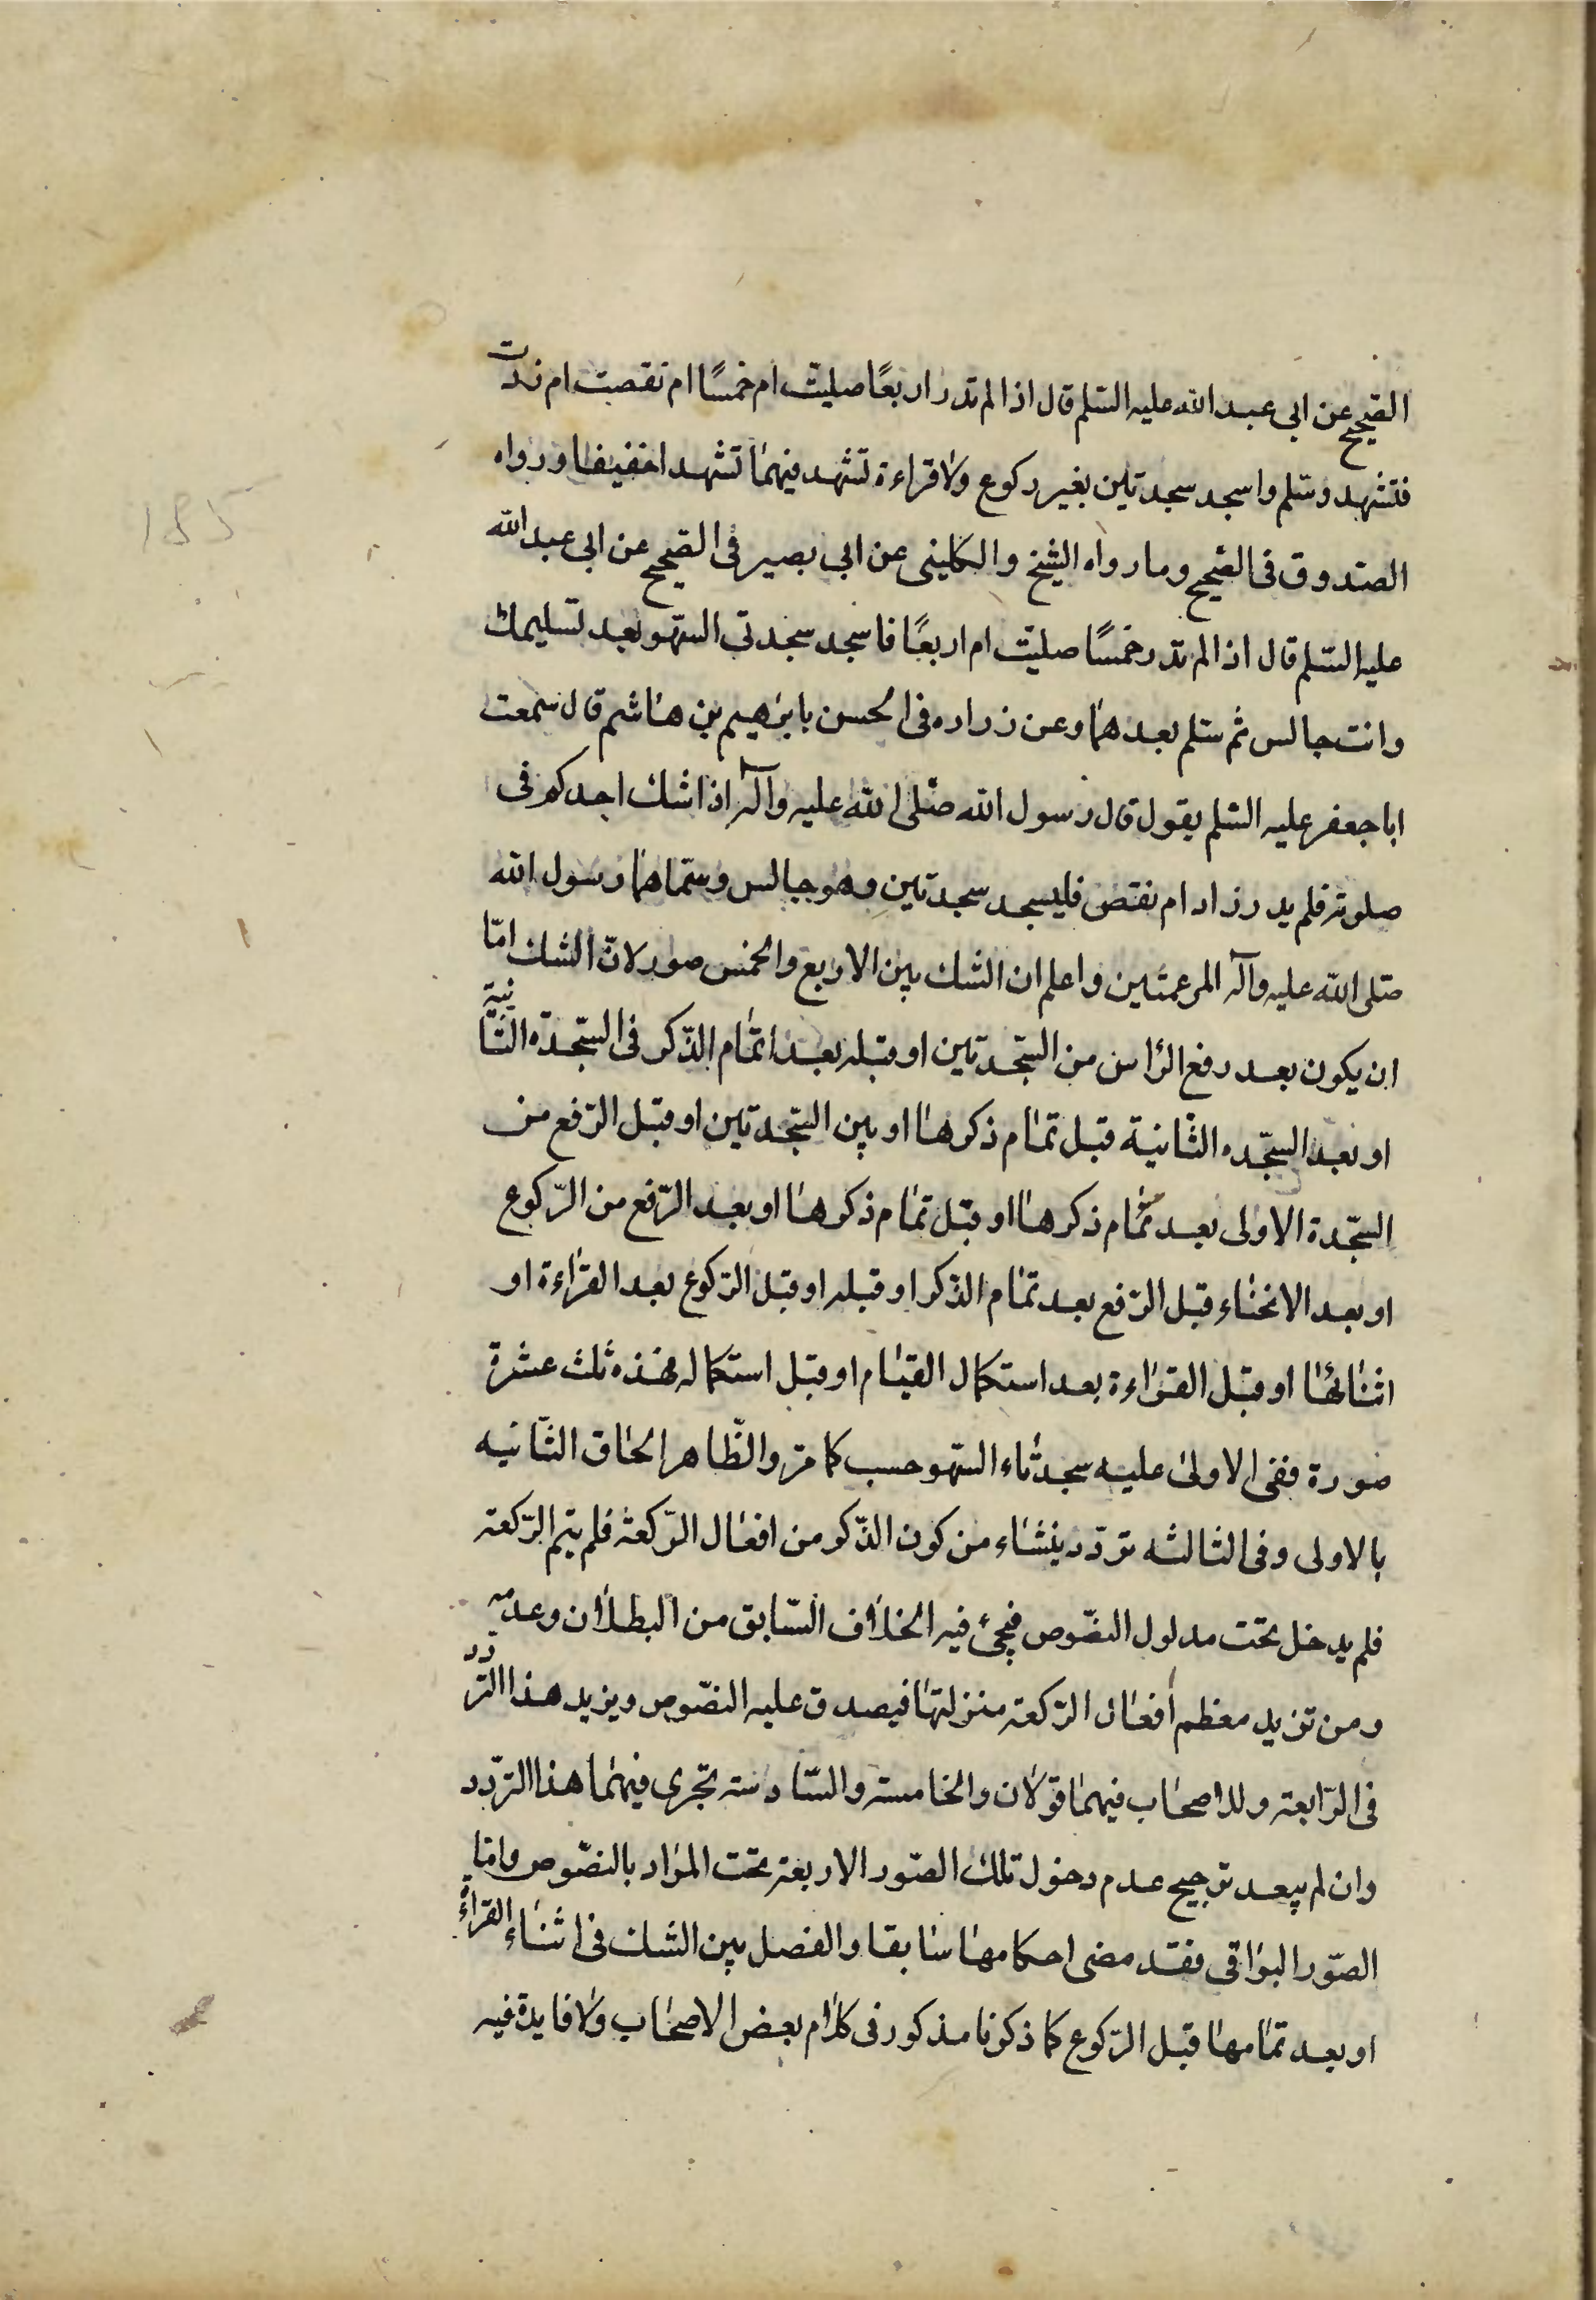 الصحيح عن ابى عبد الله عليه السّلم قال اذا لم تدر اربعًا صليت ام خمسًا ام نقصت ام زدت
فتشهد وسّلم واسجد سجدتين بغير ركوع ولا قراءة تشهد فيهما تشهدا خفيفا ورواه
الصّدوق فى الصّحيح وما رواه الشيخ والكلينى عن ابى بصير فى الصّحيح عن ابى عبد الله
عليه السّلم قال اذا لم تدر خمسًا صليت ام اربعًا فاسجد سجدتى السّهو بعد تسليمك
وانت جالس ثم سّلم بعدهما وعن زراره فى الحسن بابرهيم بن هاشم قال سمعت
ابا جعفر عليه السّلم يقول قال رسول الله صّلى الله عليه وآله اذا شك احدكم فى
صلوته فلم يدر زاد ام نقص فليسجد سجدتين وهو جالس وسمّاهما رسول الله
صّلى الله عليه وآله المرغمتين واعلم ان الشك بين الاربع والخمس صور لانّ الشك امّا
ان يكون بعد رفع الرّاس من السّجدتين او قبله بعد اتمام الذّكر فى السّجدّه الثّانية
او بعد السّجّده الثّانية قبل تمام ذكرها او بين السّجدتين او قبل الرّفع من
السّجّدة الاولى بعد تمام ذكرها او قبل تمام ذكرها او بعد الرّفع من الرّكوع
او بعد الانحناء قبل الرّفع بعد تمام الذّكر او قبله او قبل الرّكوع بعد القراءة او
اثنائها او قبل القراءة بعد استكمال القيام او قبل استكماله فهذه ثلث عشرة
صورة ففى الاولى عليه سجدتاء السّهو حسب كما مرّ والظّاهر الحاق الثّانيه
بالاولى وفى الثالثه تردّد ينشاء من كون الذّكر من افعال الرّكعة فلم يتم الرّكعة
فلم يدخل تحت مدلول النصّوص فيجئ فيه الخلاف السّابق من البطلان وعدمه
ومن تزيد معظم أفعال الرّكعة منزلتها فيصدق عليه النصّوص ويزيد هذا التردد
فى الرّابعة وللاصحاب فيهما قولان والخامسة والسّادسة تجرى فيهما هذا الترّدد
وان لم يبعد ترجيح عدم دخول تلك الصّور الاربعة تحت المراد بالنصّوص وامّا
الصّور البواقى فقد مضى احكامها سابقا والفصل بين الشك فى اثناء القراءة
او بعد تمامها قبل الرّكوع كما ذكرنا مذكور فى كلام بعض الاصحاب ولا فايدة فيه
185